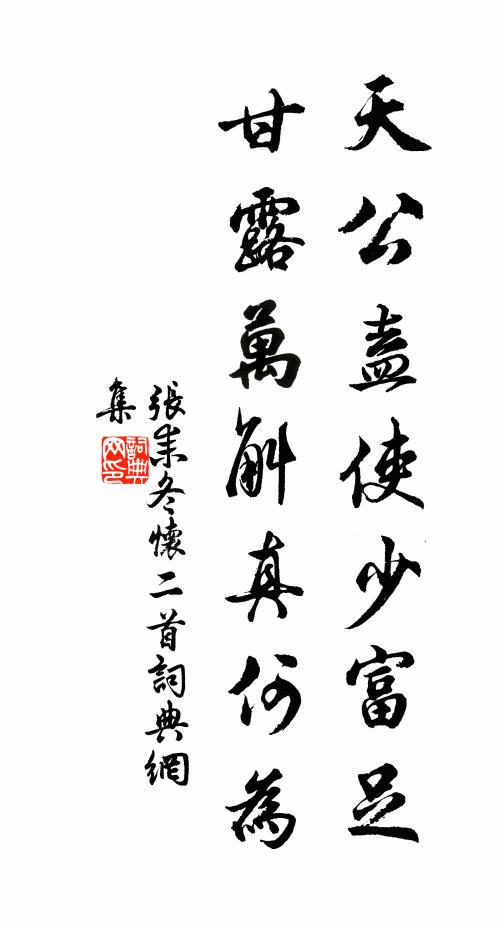 天公盍使少富足
甘露萬斛真何為
張耒冬懷二首詞典網
集
詞典
网印